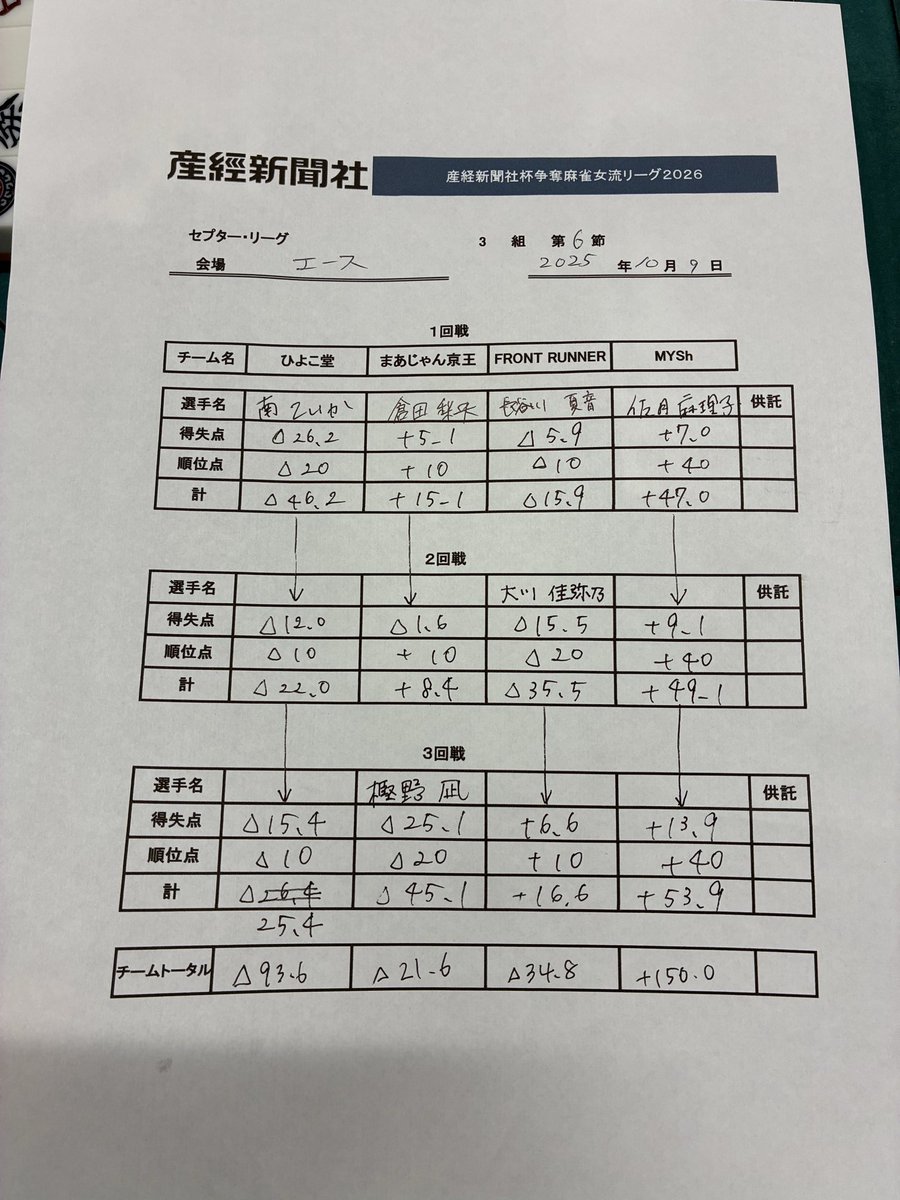 産經新聞社
産経新聞社杯争奪麻雀女流リーグ2026
セプター・リーグ 3 組 第6節
会場 エース 2025 年 10 月 9 日
1回戦
チーム名 ひよこ堂 まあじゃん京王 FRONT RUNNER MYSh
選手名 南 倉田 長谷川 夏音 佐月 麻理子 供託
得失点 △26.2 +5.1 △5.9 +7.0
順位点 △20 +10 △10 +40
計 △46.2 +15.1 △15.9 +47.0
2回戦
選手名 大川 佳弥乃 供託
得失点 △12.0 △1.6 △15.5 +9.1
順位点 △10 +10 △20 +40
計 △22.0 +8.4 △35.5 +49.1
3回戦
選手名 樫野 凪 供託
得失点 △15.4 △25.1 +6.6 +13.9
順位点 △10 △20 +10 +40
計 △26.4 △45.1 +16.6 +53.9
25.4
チームトータル △93.6 △21.6 △34.8 +150.0